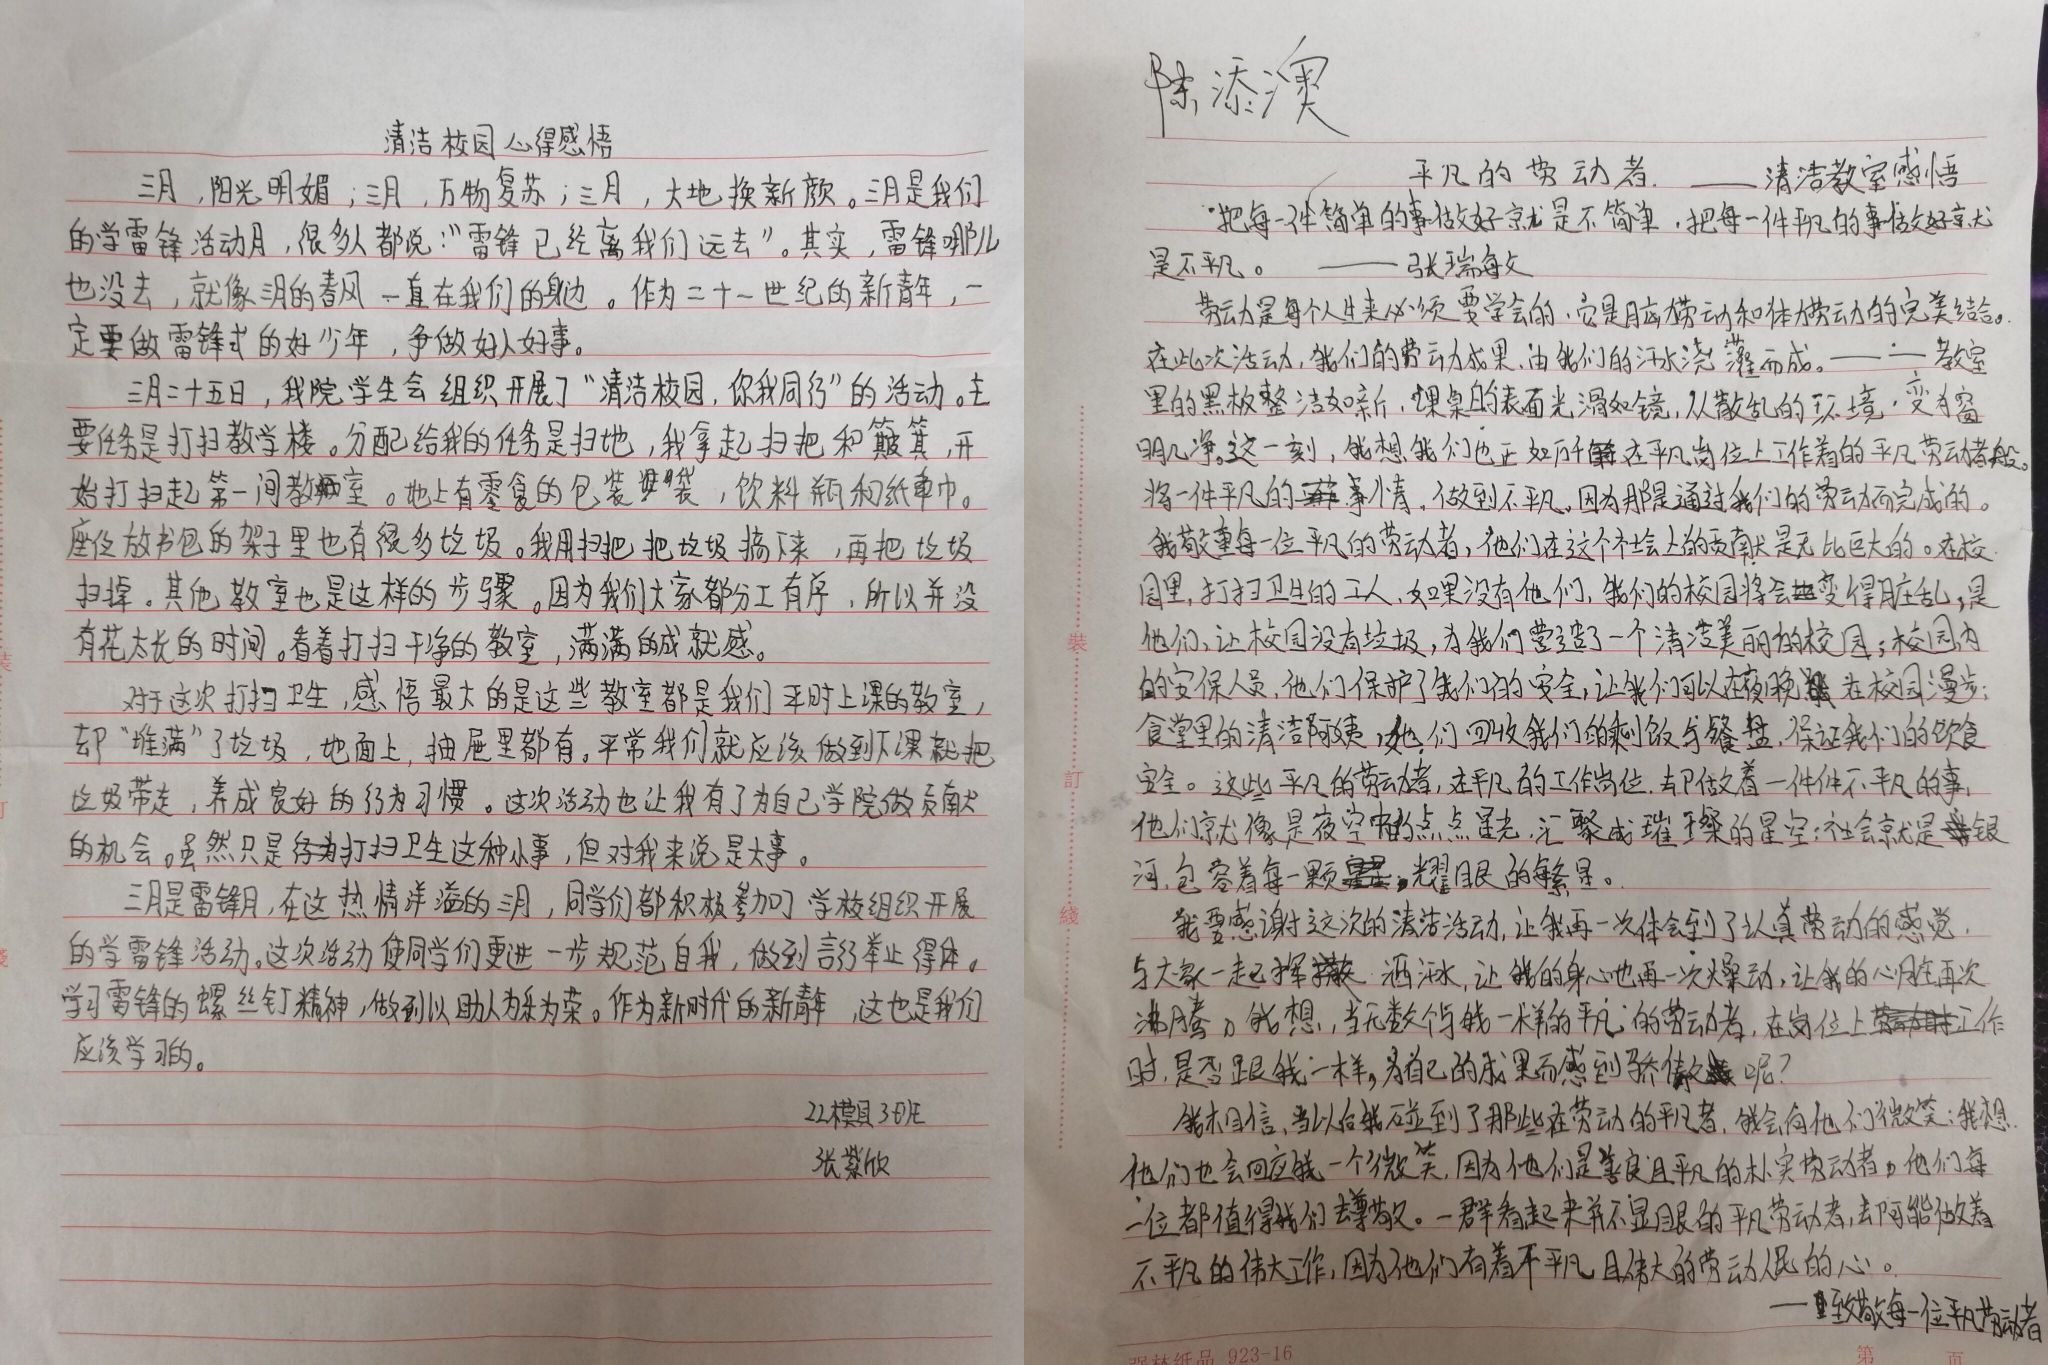 清洁校园心得感悟
三月，阳光明媚；三月，万物复苏；三月，大地换新颜。三月是我们
的学雷锋活动月，很多人都说："雷锋已经离我们远去"。其实，雷锋哪儿
也没去，就像三月的春风一直在我们的身边。作为二十一世纪的新青年，一
定要做雷锋式的好少年，争做好人好事。
三月二十五日，我院学生会组织开展了"清洁校园，你我同行"的活动。主
要任务是打扫教学楼。分配给我的任务是扫地，我拿起扫把和簸箕，开
始打扫起第一间教室。地上有零食的包装袋，饮料瓶和纸巾。
座位放书包的架子里也有很多垃圾。我用扫把把垃圾摘下来，再把垃圾
扫掉。其他教室也是这样的步骤。因为我们大家都分工有序，所以并没
有花太长的时间。看着打扫干净的教室，满满的成就感。
对于这次打扫卫生，感悟最大的是这些教室都是我们平时上课的教室，
却"堆满"了垃圾，地面上，抽屉里都有。平常我们就应该做到下课就把
垃圾带走，养成良好的行为习惯。这次活动也让我有了为自己学院做贡献
的机会。虽然只是打扫卫生这种小事，但对我来说是大事。
三月是雷锋月，在这热情洋溢的三月，同学们都积极参加了学校组织开展
的学雷锋活动。这次活动使同学们更进一步规范自我，做到言行举止得体。
学习雷锋的螺丝钉精神，做到以助人为乐为荣。作为新时代的新青年，这也是我们
应该学习的。
22模具3班
张紫欣
陈添澳
平凡的劳动者.——清洁教室感悟
"把每一件简单的事做好就是不简单，把每一件平凡的事做好就
是不平凡。——张瑞敏
劳动是每个人生来必须要学会的，它是脑力劳动和体力劳动的完美结合。
在此次活动，我们的劳动成果，由我们的汗水浇灌而成。——教室
里的黑板整洁如新，课桌的表面光滑如镜，从散乱的环境，变为窗
明几净。这一刻，我想我们也正如万千在平凡岗位上工作着的平凡劳动者般。
将一件平凡的事情，做到不平凡。因为那是通过我们的劳动而完成的。
我敬重每一位平凡的劳动者，他们在这个社会上的贡献是无比巨大的。在校
园里，打扫卫生的工人，如果没有他们，我们的校园将会变得脏乱，是
他们，让校园没有垃圾，为我们营造了一个清洁美丽的校园；校园内
的安保人员，他们保护了我们的安全，让我们可以在夜晚在校园漫步；
食堂里的清洁阿姨，她们回收我们的剩饭与餐盘，保证我们的饮食
安全。这些平凡的劳动者，在平凡的工作岗位，却做着一件件不平凡的事，
他们就像是夜空中的点点星光，汇聚成璀璨的星空；社会就是银
河，包容着每一颗耀眼的繁星。
我要感谢这次的清洁活动，让我再一次体会到了认真劳动的感觉，
与大家一起挥洒汗水，让我的身心也再一次燥动，让我的心脏再次
沸腾，我想，当无数个与我一样的平凡的劳动者，在岗位上工作
时，是否跟我一样，为自己的成果而感到骄傲呢？
我相信，当以后我碰到了那些在劳动的平凡者，我会向他们微笑；我想
他们也会回应我一个微笑，因为他们是善良且平凡的朴实劳动者，他们每
一位都值得我们去尊敬。一群看起来并不显眼的平凡劳动者，却可能做着
不平凡的伟大工作，因为他们有着不平凡且伟大的劳动人民的心。
——致敬每一位平凡劳动者
裝
訂
綫
923-16
第 页